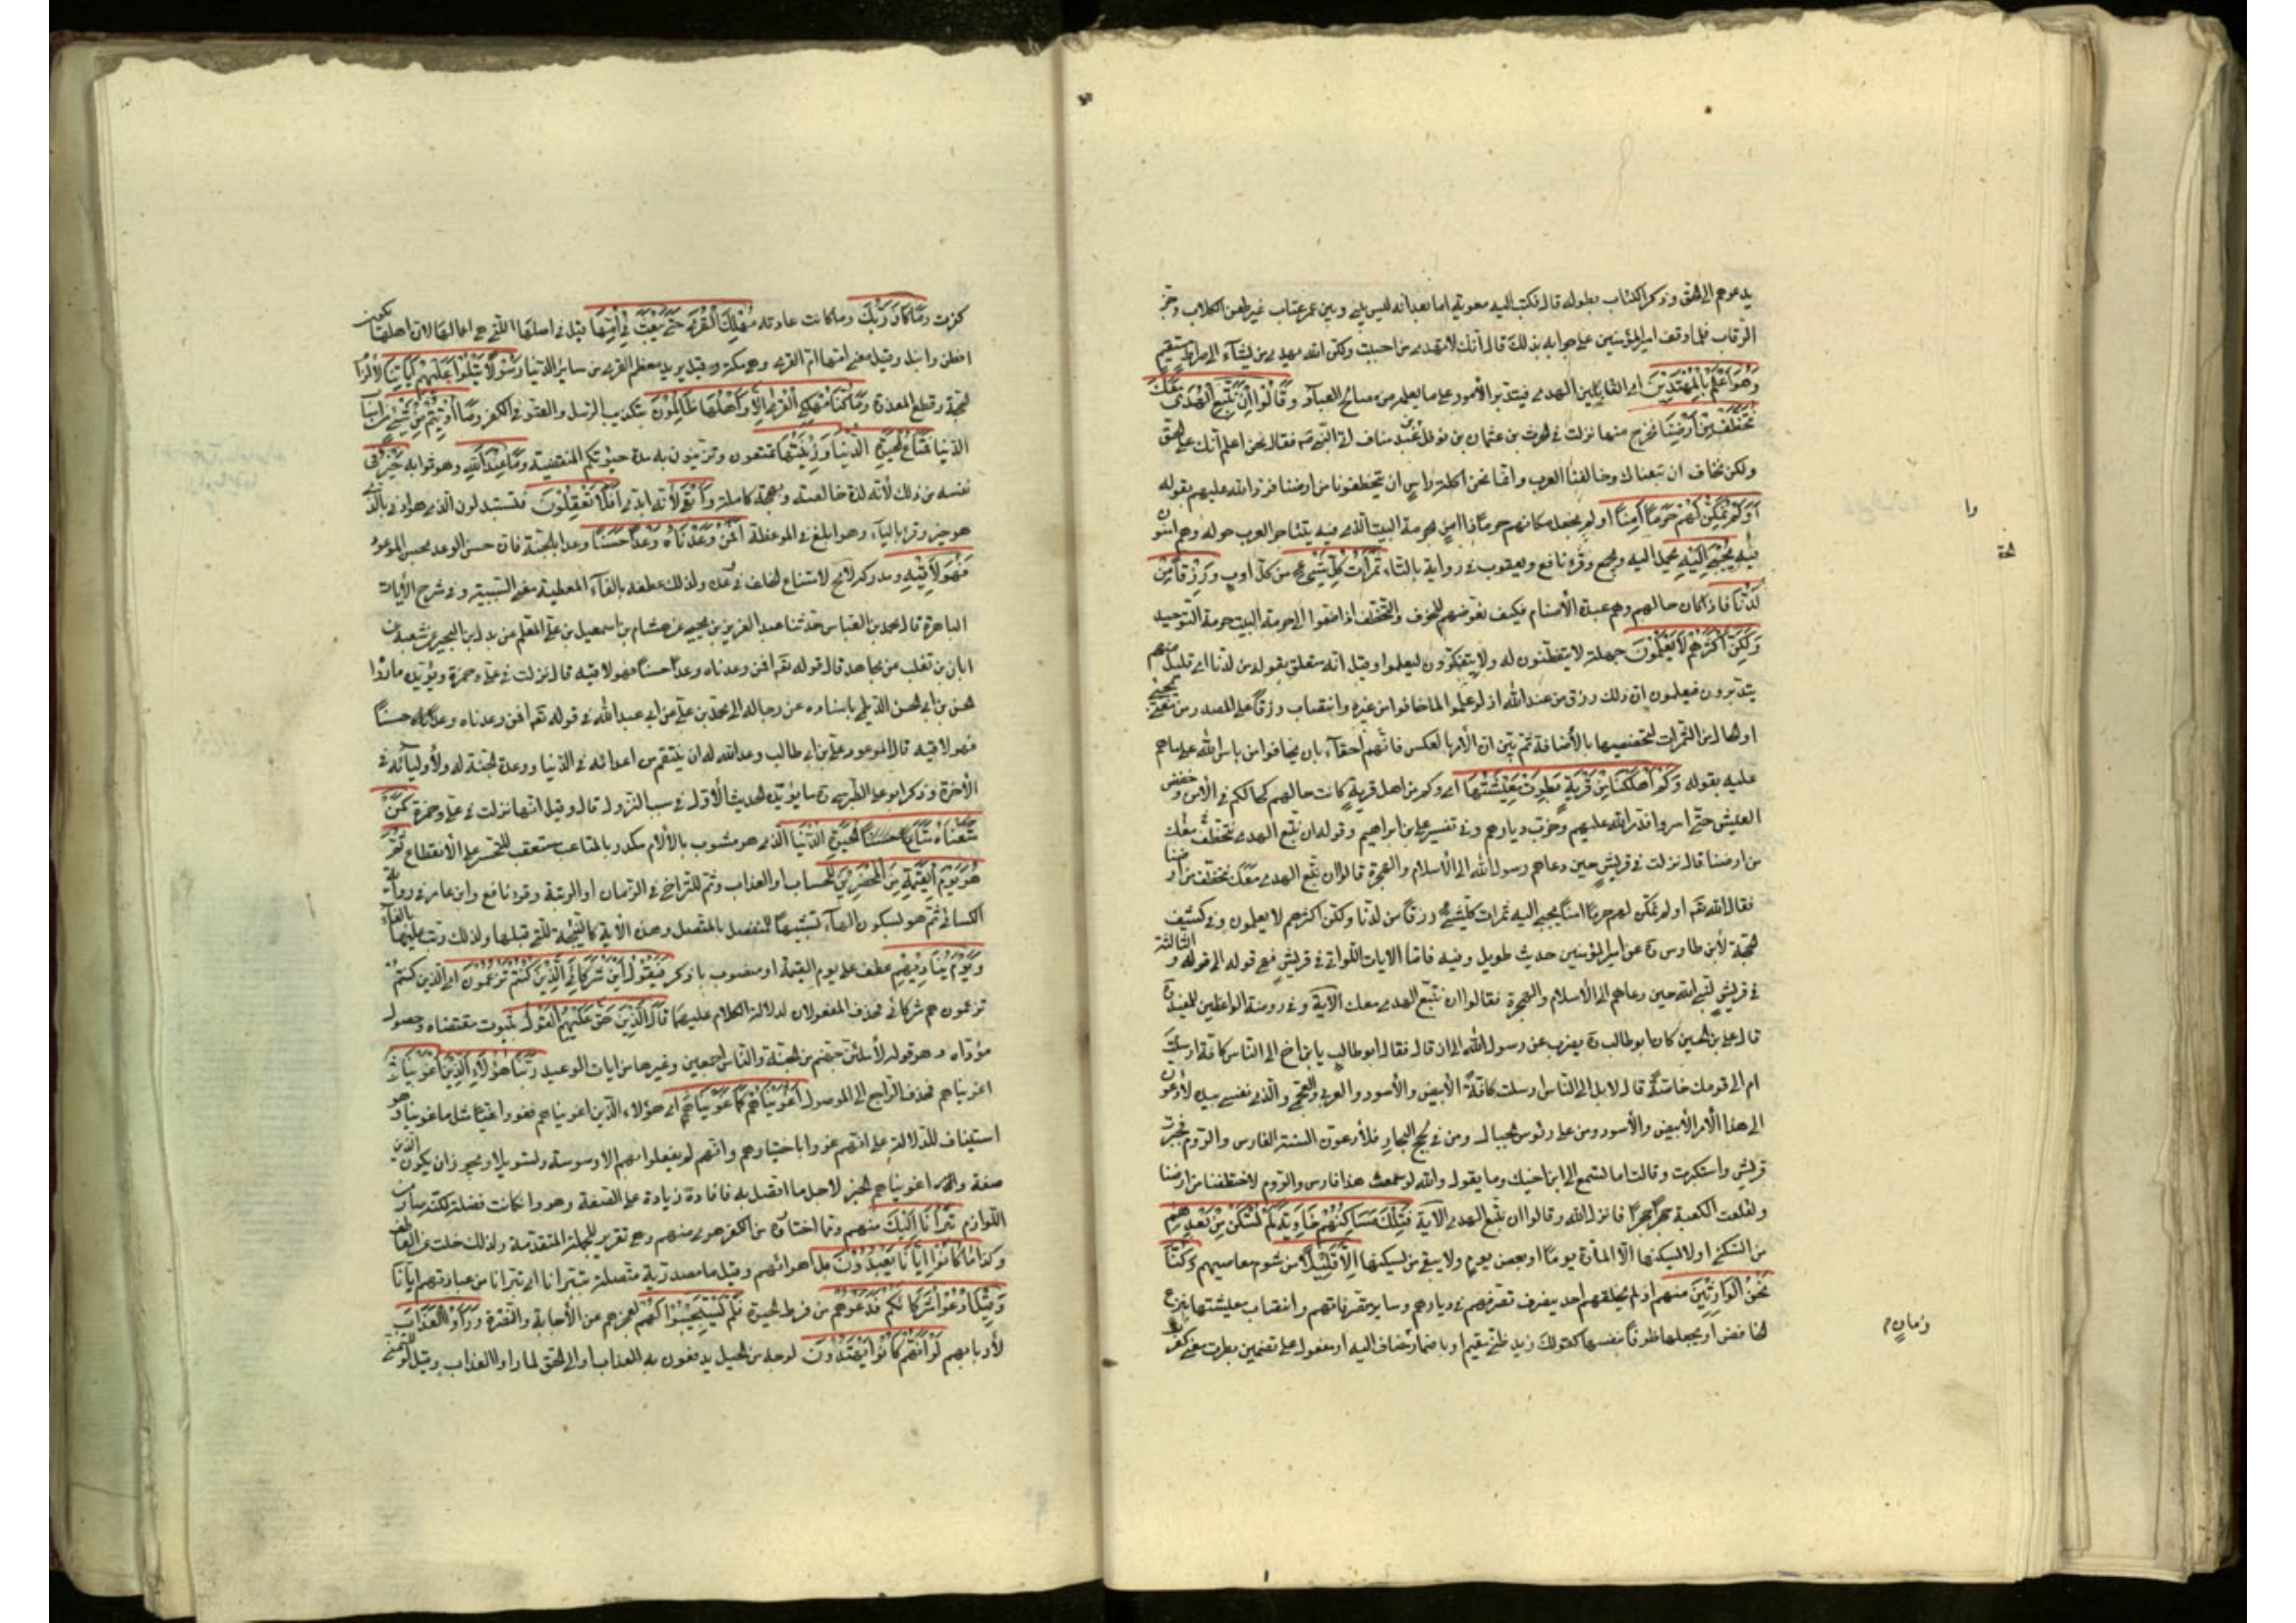 يدعوهم الى الحق وذكر الكتاب بطوله قال فكتب اليه معوية اما بعد انه ليس بيني وبين عمر عتاب غير طعن الكلاب وحز
الرقاب فلما وقف امير المؤمنين على جوابه بذلك قال انك لا تهدي من احببت ولكن الله يهدي من يشاء الى صراط مستقيم
وَهُوَ اَعْلَمُ بِالْمُهْتَدِينَ اي القابلين الهدى فيتدبر الأمور على ما يعلمه من مصالح العباد وَقَالُوا اِنْ نَتَّبِعِ الْهُدَى مَعَكَ
نُتَخَطَّفْ مِنْ اَرْضِنَا نخرج منها نزلت في الحرث بن عثمان بن نوفل بن عبد مناف اتى النبي ص فقال نحن اعلم انك على الحق
ولكن نخاف ان تبعناك وخالفنا العرب وانما نحن اكلة راس ان يتخطفونا من ارضنا فرد الله عليهم بقوله
اَوَلَمْ نُمَكِّنْ لَهُمْ حَرَماً آمِناً اولم نجعل مكانهم حرما ذا امن لحرمة البيت الذي فيه يتناحر العرب حوله وهم آمنون
فيه يُجْبَى اِلَيْهِ يحمل اليه ويجمع وقرء نافع ويعقوب في رواية بالتاء ثَمَرَاتُ كُلِّ شَيْءٍ من كل اوب رِزْقاً مِنْ
لَدُنَّا فاذا كان حالهم وهم عبدة الأصنام فكيف نعرضهم للخوف والتخطف اذا ضموا الى حرمة البيت حرمة التوحيد
وَلَكِنَّ اَكْثَرَهُمْ لَا يَعْلَمُونَ جهلة لا يتفطنون له ولا يتفكرون ليعلموا وقيل انه متعلق بقوله من لدنا اي قليل منهم
يتدبرون فيعلمون ان ذلك رزق من عند الله اذ لو علموا لما خافوا من غيره وانتصاب رزقا على المصدر من معنى يجبى
او حال من الثمرات لتخصصها بالأضافة ثم بين ان الأمر بالعكس فانهم احقاء بان يخافوا من باس الله على ما هم
عليه بقوله وَكَمْ اَهْلَكْنَا مِنْ قَرْيَةٍ بَطِرَتْ مَعِيشَتَهَا اي وكم من اهل قرية كانت حالهم كحالكم في الأمن وخفض
العيش حتى اسروا فدمر الله عليهم وخرب ديارهم وفي تفسير علي بن ابراهيم وقوله ان نتبع الهدى نتخطف معك
من ارضنا قال نزلت في قريش حين دعاهم رسول الله الى الأسلام والهجرة قالوا ان نتبع الهدى معك نتخطف من ارضنا
فقال الله تعه اولم نمكن لهم حرما امنا يجبى اليه ثمرات كل شيء رزقا من لدنا ولكن اكثرهم لا يعلمون وفي كشف
المحجة لأبن طاوس ره عن امير المؤمنين حديث طويل وفيه فاما الايات اللواتي في قريش فهي قوله الى قوله والثالثة
في قريش لنبي الله حين دعاهم الى الأسلام والهجرة فقالوا ان نتبع الهدى معك الآية وفي روضة الواعظين للمفيد ره
قال علي بن الحسين كان ابو طالب ره يضرب عن رسول الله الى ان قال فقال ابو طالب يا بن اخ الى الناس كافة ارسلت
ام الى قومك خاصة قال لا بل الى الناس ارسلت كافة الأبيض والأسود والعربي والعجمي والذي نفسي بيده لأدعون
الى هذا الأمر الأبيض والأسود ومن على رؤس الجبال ومن في لجج البحار فلأدعون السنة الفارس والروم فتجبرت
قريش واستكبرت وقالت اما تسمع الى ابن اخيك وما يقول والله لو سمعت هذا فارس والروم لاختطفتنا من ارضنا
ولقلعت الكعبة حجراً حجراً فانزل الله وقالوا ان نتبع الهدى الآية فَتِلْكَ مَسَاكِنُهُمْ خاوية لَمْ تُسْكَنْ مِنْ بَعْدِهِمْ
من السكنى او لا يسكنها الا المارة يوما او بعض يوم ولا يبقى من يسكنها اِلَّا قَلِيلًا من شوم معاصيهم وَكُنَّا
نَحْنُ الْوَارِثِينَ منهم اذ لم يخلفهم احد يتصرف تصرفهم في ديارهم وساير متصرفاتهم وانتصاب معيشتها بنزع
الخافض او يجعلها ظرفا بنفسها كقولك زيد ظني مقيم او باضمار مضاف اليه او مفعول على تضمين بطرت معنى كفرت
وا
لحة
زمان م
كفرت وَمَا كَانَ رَبُّكَ وما كانت عادته مُهْلِكَ الْقُرَى حَتَّى يَبْعَثَ فِي اُمِّهَا قيل في اصلها التي هي اعمالها لان اهلها تكون
افطن وانبل وقيل معنى امها ام القرى وهي مكة وقيل يريد معظم القرى من ساير الدنيا رَسُولًا يَتْلُوا عَلَيْهِمْ آيَاتِنَا لألزام
الحجة وقطع المعذرة وَمَا كُنَّا مُهْلِكِي الْقُرَى اِلَّا وَاَهْلُهَا ظَالِمُونَ بتكذيب الرسل والعتو في الكفر وَمَا اُوتِيتُمْ مِنْ شَيْءٍ من اسباب
الدنيا فَمَتَاعُ الْحَيَوةِ الدُّنْيَا وَزِينَتُهَا تمتعون وتزينون به مدة حيوتكم المنقضية وَمَا عِنْدَ اللهِ وهو ثوابه خَيْرٌ في
نفسه من ذلك لأنه لذة خالصة وبهجة كاملة وَاَبْقَى لأنه ابدي اَفَلَا تَعْقِلُونَ فتستبدلون الذي هو ادنى بالذي
هو خير وقرء بالياء وهو ابلغ في الموعظة اَفَمَنْ وَعَدْنَاهُ وَعْداً حَسَناً وعدا بالجنة فان حسن الوعد بحسن الموعود
فَهُوَ لَاقِيهِ ومدركه لامح لامتناع الخلف في وعده ولذلك عطفه بالفاء المعطية معنى السببية وفي شرح الأيات
الباهرة قال محمد بن العباس حدثنا عبد العزيز بن يحيى عن هشام بن اسمعيل بن علي المعلم عن بدل بن البحير عن شعبة عن
ابان بن تغلب عن مجاهد قال قوله تعه افمن وعدناه وعدا حسنا فهو لاقيه قال نزلت في علي وحمزة ويؤيده ما رواه
الحسن بن ابي الحسن الديلمي باسناده عن رجاله الى محمد بن علي عن ابي عبد الله في قوله تعه افمن وعدناه وعدا حسنا
فهو لاقيه قال الموعود علي بن ابي طالب وعد الله له ان ينتقم من اعدائه في الدنيا ووعده الجنة له ولأوليائه في
الأخرة وذكر ابو علي الطبرسي ره ما يؤيد الحديث الأول في سبب النزول قال وقيل انها نزلت في علي وحمزة كَمَنْ
مَتَّعْنَاهُ مَتَاعَ الْحَيَوةِ الدُّنْيَا الذي هو مشوب بالألام مكدر بالمتاعب مستعقب للتحسر على الأنقطاع ثُمَّ
هُوَ يَوْمَ الْقِيَمَةِ مِنَ الْمُحْضَرِينَ للحساب او العذاب وثم للتراخي في الزمان او الرتبة وقرء نافع وابن عامر في رواية
الكسائي ثم هو بسكون الهاء تشبيها للمنفصل بالمتصل وهذه الآية كالنتيجة للتي قبلها ولذلك رتب عليها بالفاء
وَيَوْمَ يُنَادِيهِمْ عطف على يوم القيمة او منصوب باذكر فَيَقُولُ اَيْنَ شُرَكَائِيَ الَّذِينَ كُنْتُمْ تَزْعُمُونَ اي الذين كنتم
تزعمون هم شركائي فحذف المفعولان لدلالة الكلام عليهما قَالَ الَّذِينَ حَقَّ عَلَيْهِمُ الْقَوْلُ بثبوت مقتضاه وحصول
مؤداه وهو قوله لأملئن جهنم من الجنة والناس اجمعين وغيرها من ايات الوعيد رَبَّنَا هَؤُلَاءِ الَّذِينَ اَغْوَيْنَا
اغويناهم فحذف الراجع الى الموصول اَغْوَيْنَاهُمْ كَمَا غَوَيْنَا اي هؤلاء الذين اغويناهم فغووا غيا مثل ما غوينا وهو
استيناف للدلالة على انهم غووا باختيارهم وانهم لم يفعلوا بهم الا وسوسة وتسويلا ويجوز ان يكون الذين
صفة واغويناهم الخبر لاجل ما اتصل به فافاده زيادة على الصفة وهو وان كانت فضلة لكنه صار من
اللوازم تَبَرَّأْنَا اِلَيْكَ منهم ومما اختاروه من الكفر هوى منهم وهي تقرير للجملة المتقدمة ولذلك خلت عن العاطف
وكذا مَا كَانُوا اِيَّانَا يَعْبُدُونَ بل اهوائهم وقيل ما مصدرية متصلة بتبرانا اي تبرانا من عبادتهم ايانا
وَقِيلَ ادْعُوا شُرَكَاءَكُمْ فَدَعَوْهُمْ من فرط الحيرة فَلَمْ يَسْتَجِيبُوا لَهُمْ لعجزهم عن الأجابة والنصرة وَرَاَوُا الْعَذَابَ
لأربابهم لَوْ اَنَّهُمْ كَانُوا يَهْتَدُونَ لوجه من الحيل يدفعون به العذاب او الى الحق لما راوا العذاب وقيل لو للتمني